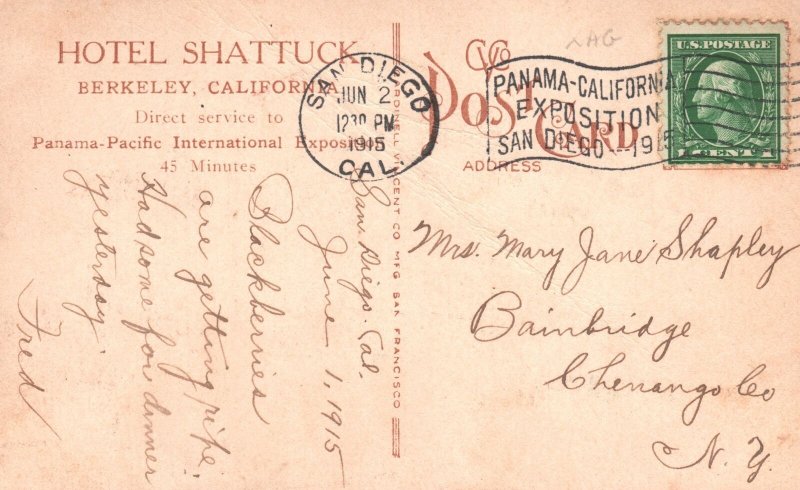 HOTEL SHATTUCK
BERKELEY, CALIFORNIA
Direct service to
Panama-Pacific International Exposition
45 Minutes
SAN DIEGO
JUN 2
1230 PM
1915
CAL.
PANAMA-CALIFORNIA
EXPOSITION
SAN DIEGO---1915
POST CARD
ADDRESS
U.S. POSTAGE
1 CENT 1
CARDINELL VINCENT CO MFG SAN FRANCISCO
San Diego. Cal.
June 1, 1915
Blackberries
are getting ripe.
Had some for dinner
yesterday.
Fred
Mrs. Mary Jane Shapley
Bainbridge
Chenango Co
N. Y.